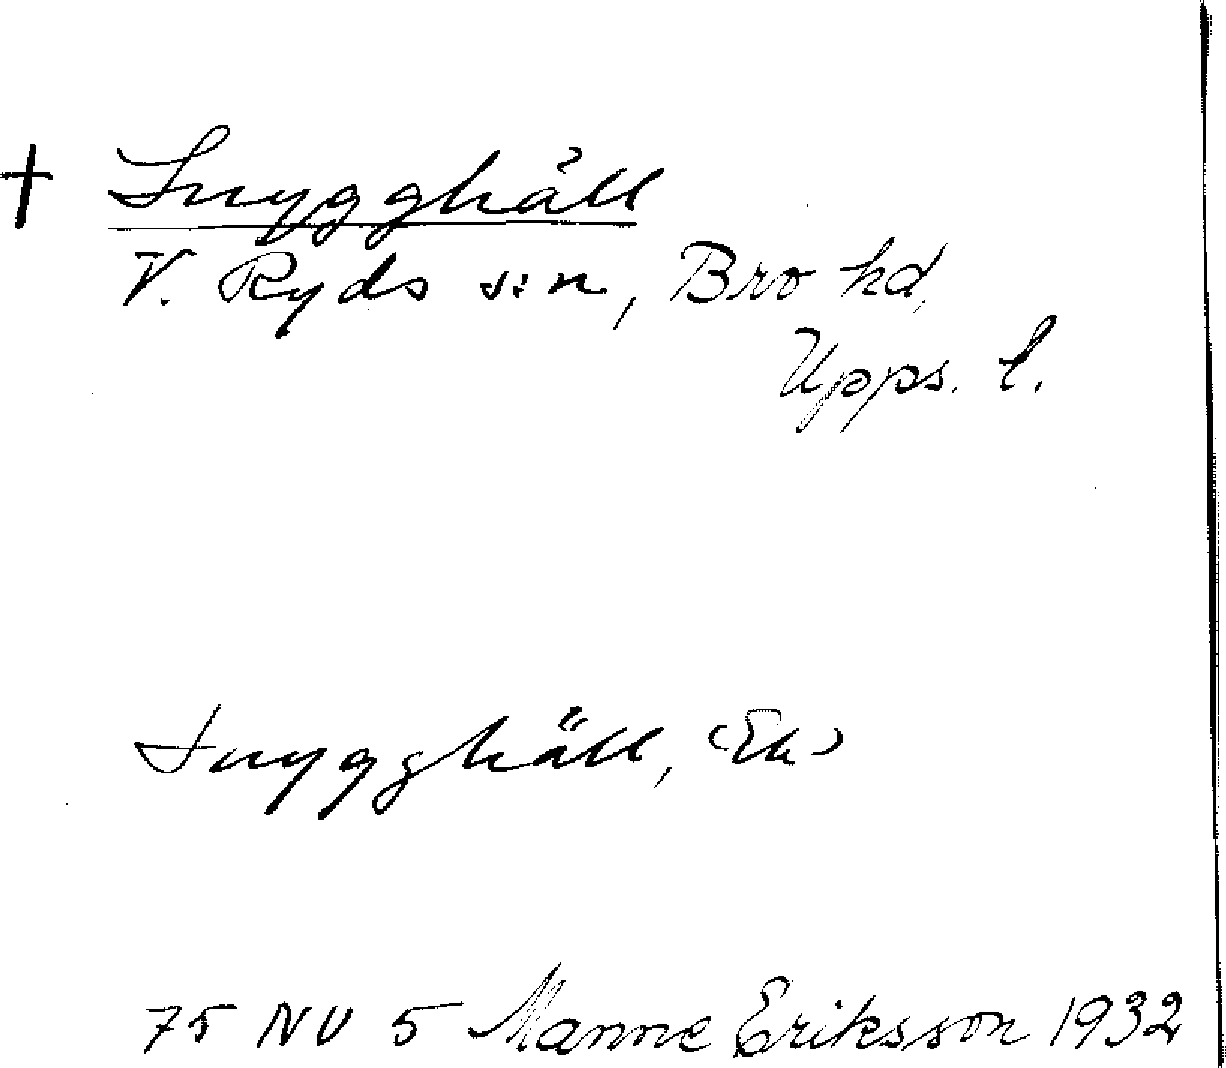 † Snygghäll
V. Ryds s:n, Bro hd,
Upps. l.
Snygghäll, (Ek)
75 NV 5 Manne Eriksson 1932